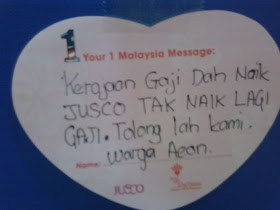 1 Your 1 Malaysia Message:
Kerajaan Gaji Dah Naik
JUSCO TAK NAIK LAGI
GAJI. Tolong lah kami.
Warga Aeon.
Name:
JUSCO